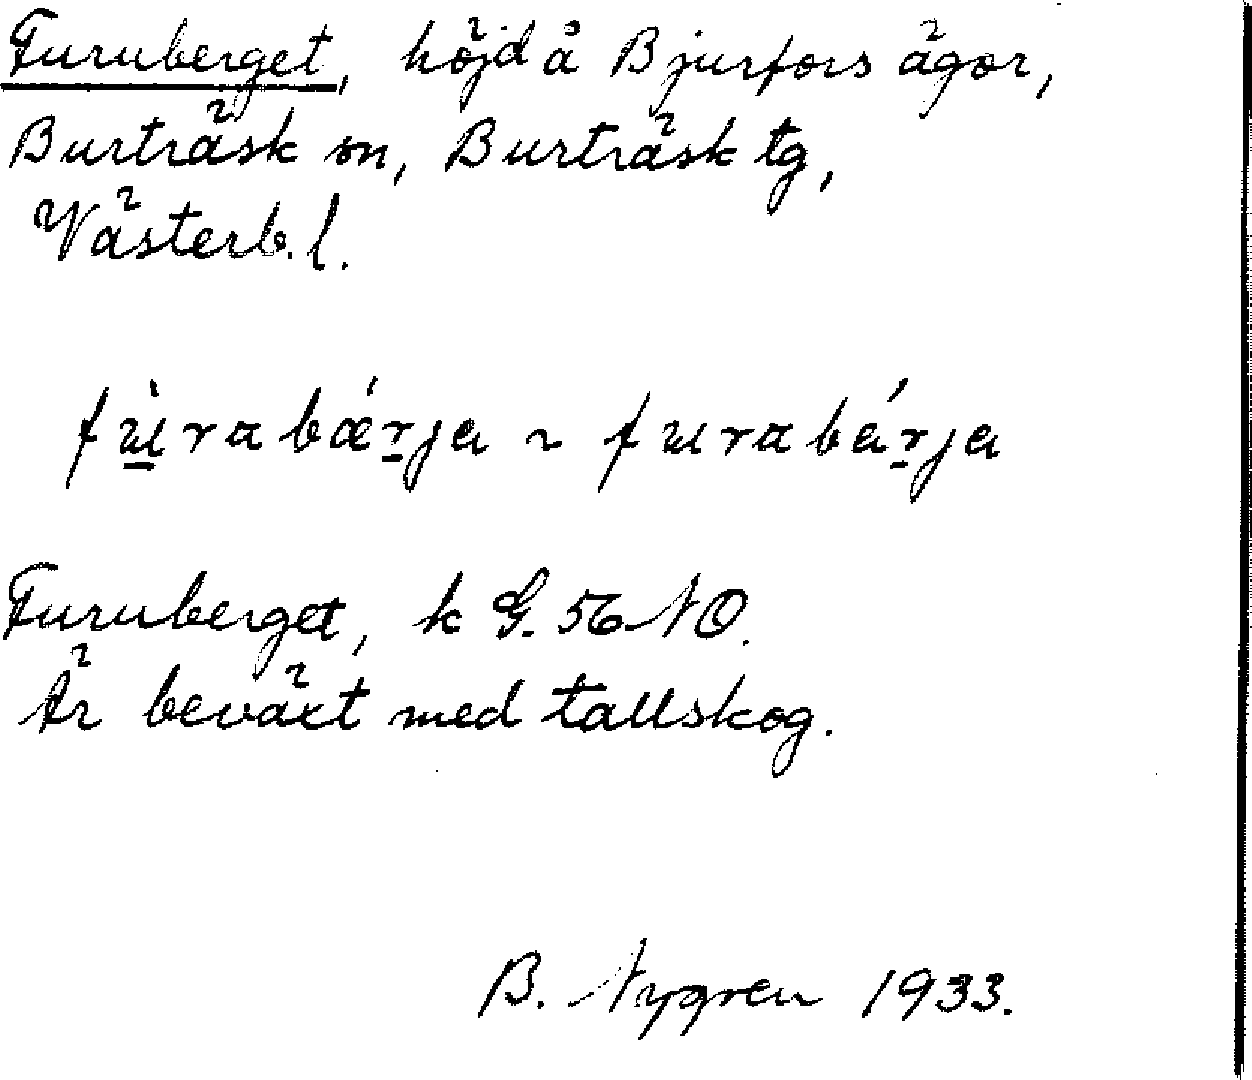 Furuberget, höjd å Bjurfors ägor,
Burträsk sn, Burträsk tg,
Västerb. l.
fùrabǽrja ~ furabárja
Furuberget, k G. 56 NO.
Är beväxt med tallskog.
B. Nygren 1933.